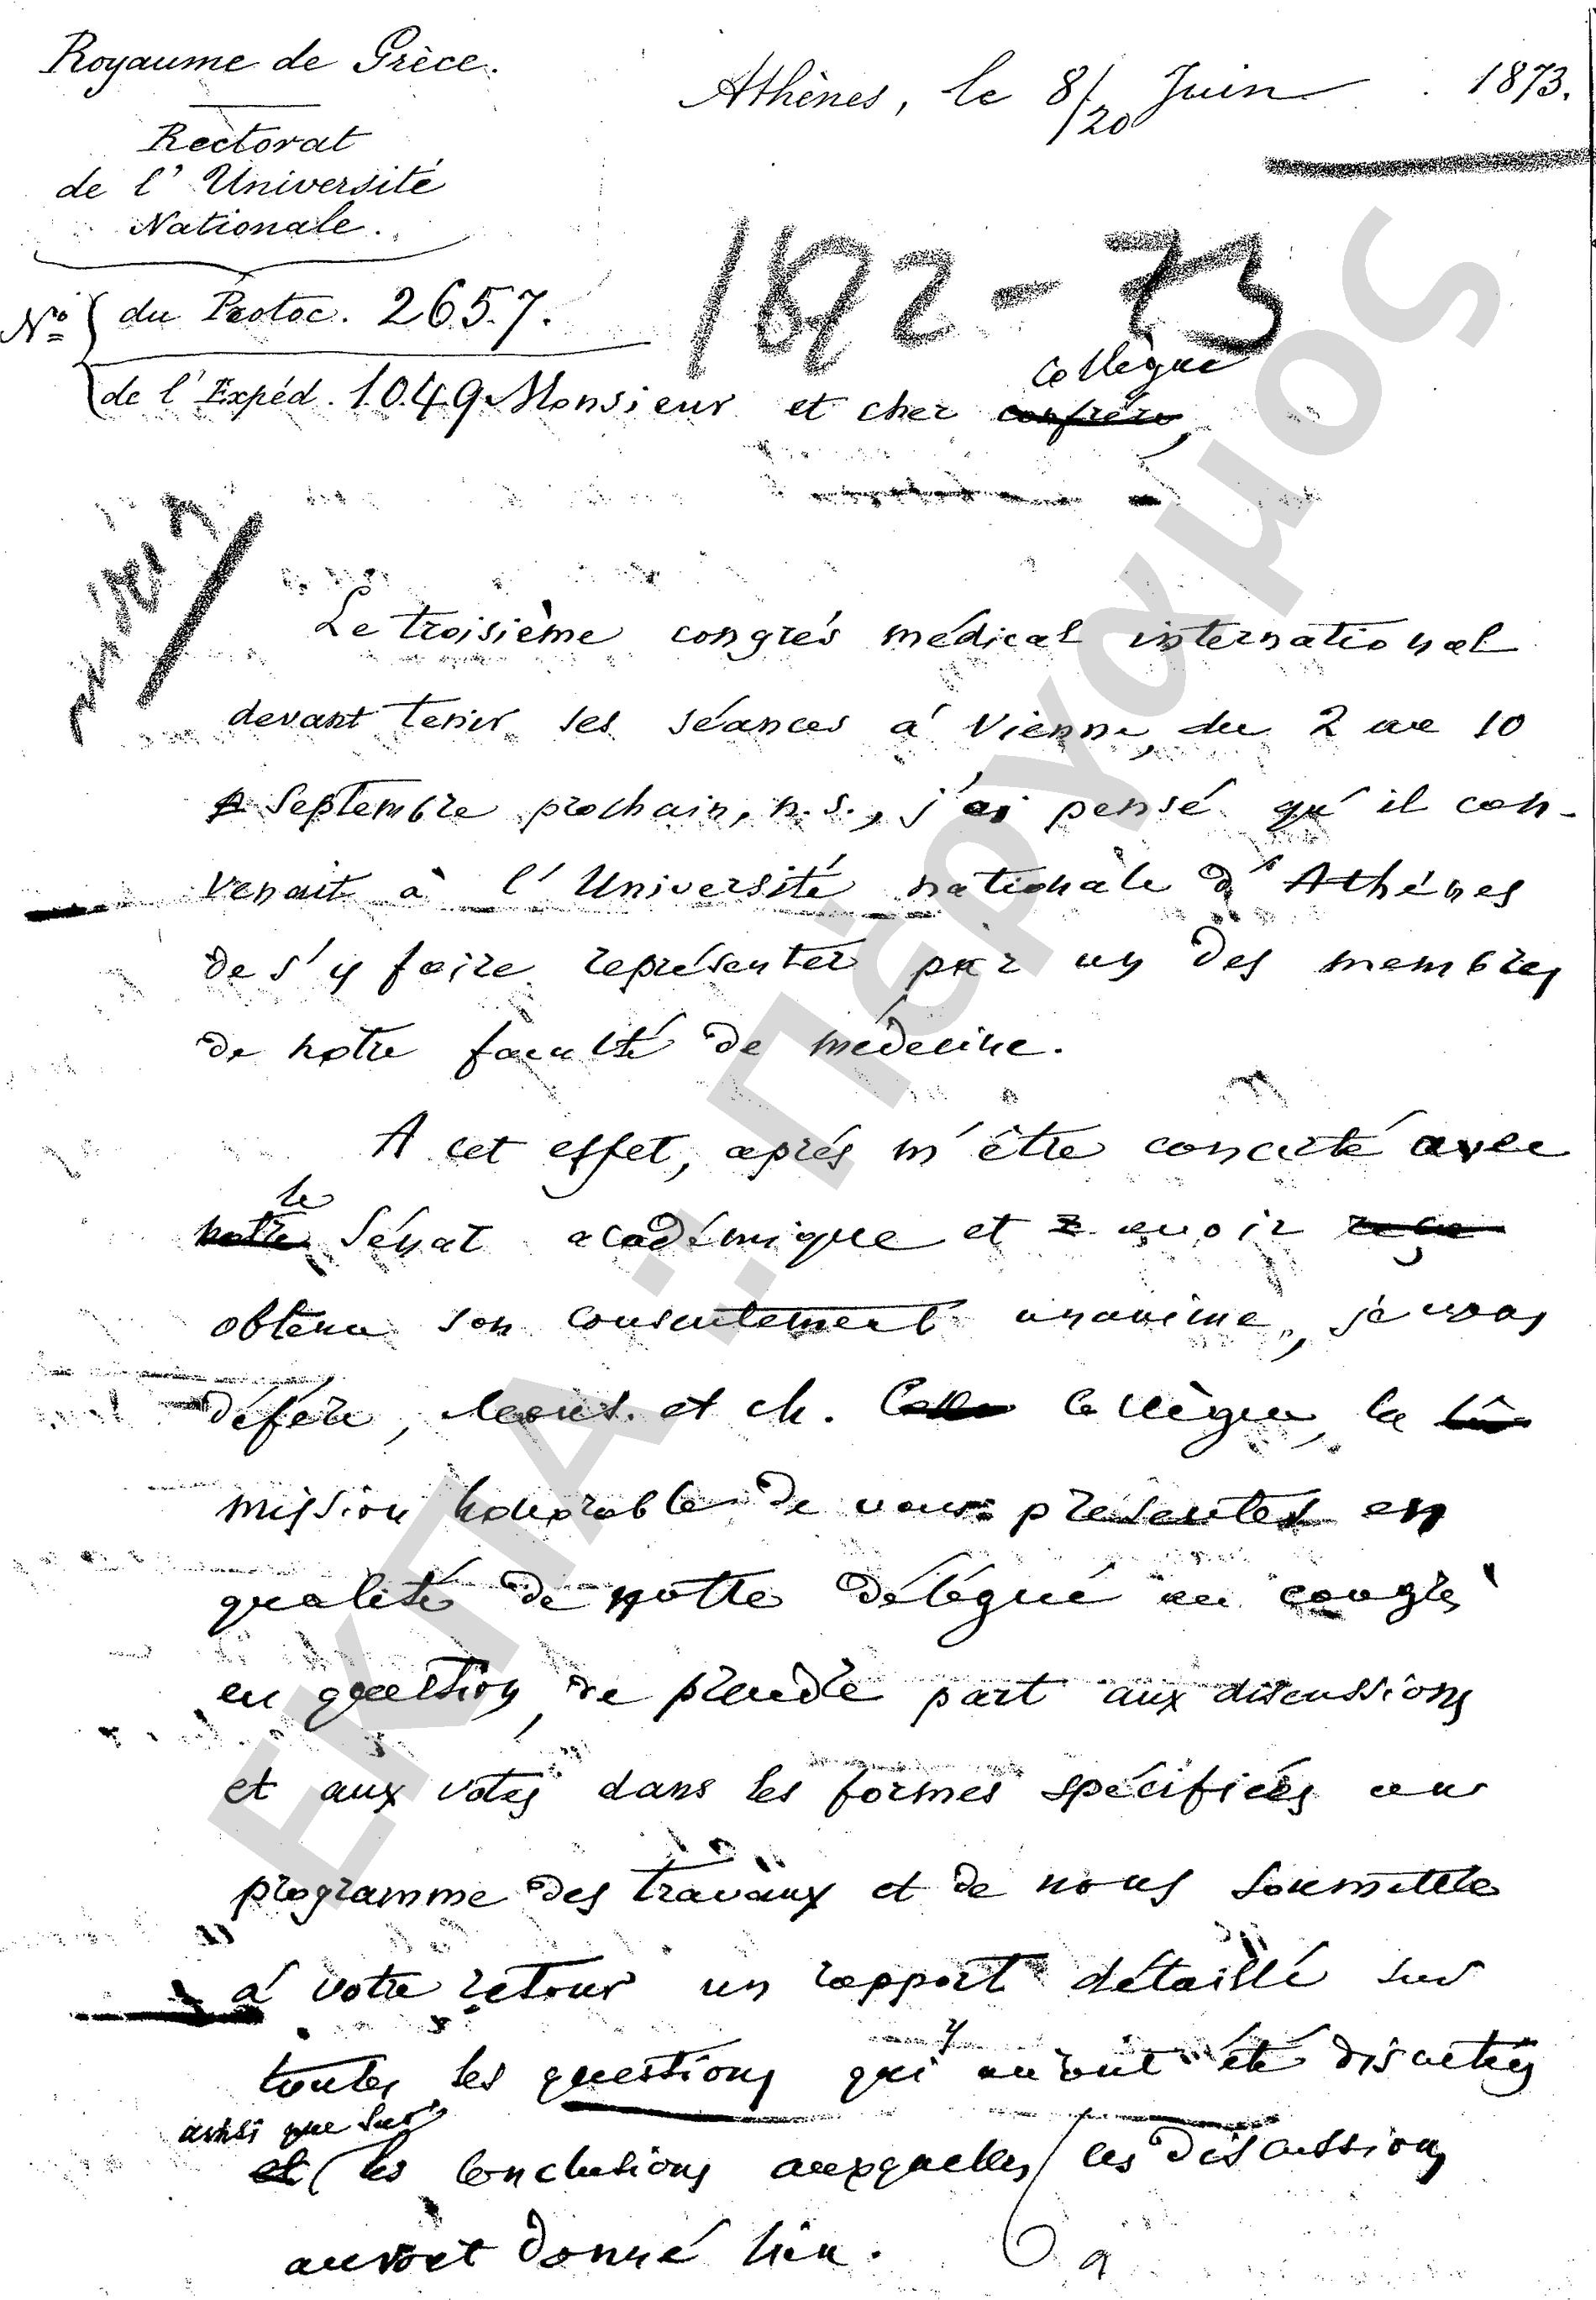 Royaume de Grèce.
Rectorat
de l'Université
Nationale.
Athènes, le 8/20 Juin 1873.
1872-73
No du Protoc. 2657.
de l'Expéd. 1049.
collègue
Monsieur et cher confrère,
Le troisième congrés médical international
devant tenir ses séances à Vienne, du 2 au 10
Septembre prochain, n.s., j'ai pensé qu'il con-
venait à l'Université nationale d'Athénes
de s'y faire représenter par un des membres
de notre faculté de médecine.
A cet effet, aprés m'être concerté avec
le
notre Sénat académique et avoir reçu
obtenu son consentement unanime, je vous
défére, Mons. et ch. Collègue, la
mission honorable de vous présenter en
qualité de notre délégué au congrès
en question, de prendre part aux discussions
et aux votes dans les formes spécifiées au
programme des travaux et de nous soumettre
à votre retour un rapport détaillé sur
toutes les questions qui y auront été discutées
ainsi que sur
et les conclusions auxquelles les discussions
auront donné lieu.
ΕΚΠΑ : Πέργαμος